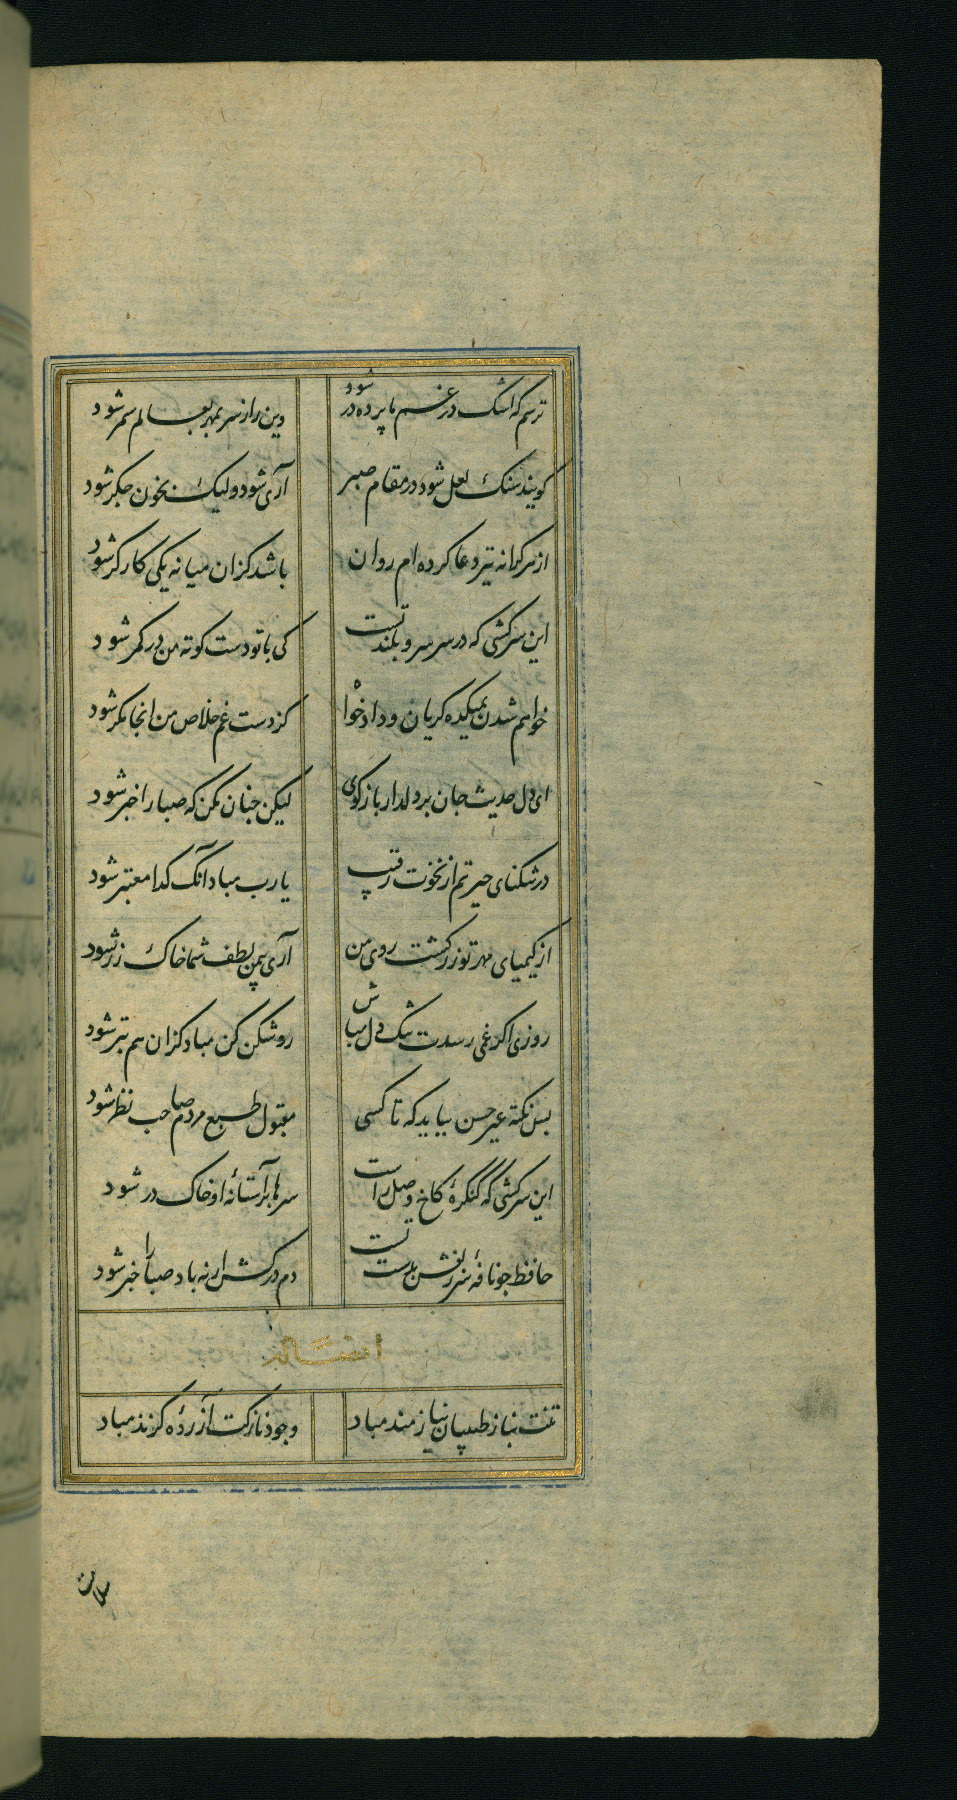 ترسم که اشک در غم ما پرده در شود
وین راز سر بمهر بعالم سمر شود
کویند سنک لعل شود در مقام صبر
آری شود ولیک بخون جکر شود
از هر کرانه تیر دعا کرده ام روان
باشد کزان میانه یکی کارکر شود
این سرکشی که در سر سرو بلند تست
کی با تو دست کوته من در کمر شود
خواهم شدن بمیکده کریان و داد خواه
کز دست غم خلاص من انجا مکر شود
ای دل حدیث جان بر دلدار بازکوی
لیکن جنان مکن که صبا را خبر شود
در تنکنای حیرتم از نخوت رقیب
یا رب مباد آنک کدا معتبر شود
از کیمیای مهر تو زر کشت روی من
آری بیمن لطف شما خاک زر شود
روزی اکر غمی رسدت تنک دل مباش
رو شکر کن مباد کزان هم بتر شود
بس نکته غیر حسن بیاید که تا کسی
مقبول طبع مردم صاحب نظر شود
این سرکشی که کنکرهٔ کاخ وصل راست
سرها بر آستانهٔ او خاک در شود
حافظ جو نافهٔ سر زلفش بدست تست
دم درکش ار نه باد صبا را خبر شود
تنت بناز طبیبان نیازمند مباد
وجود نازکت آزردهٔ کزند مباد
سلامت